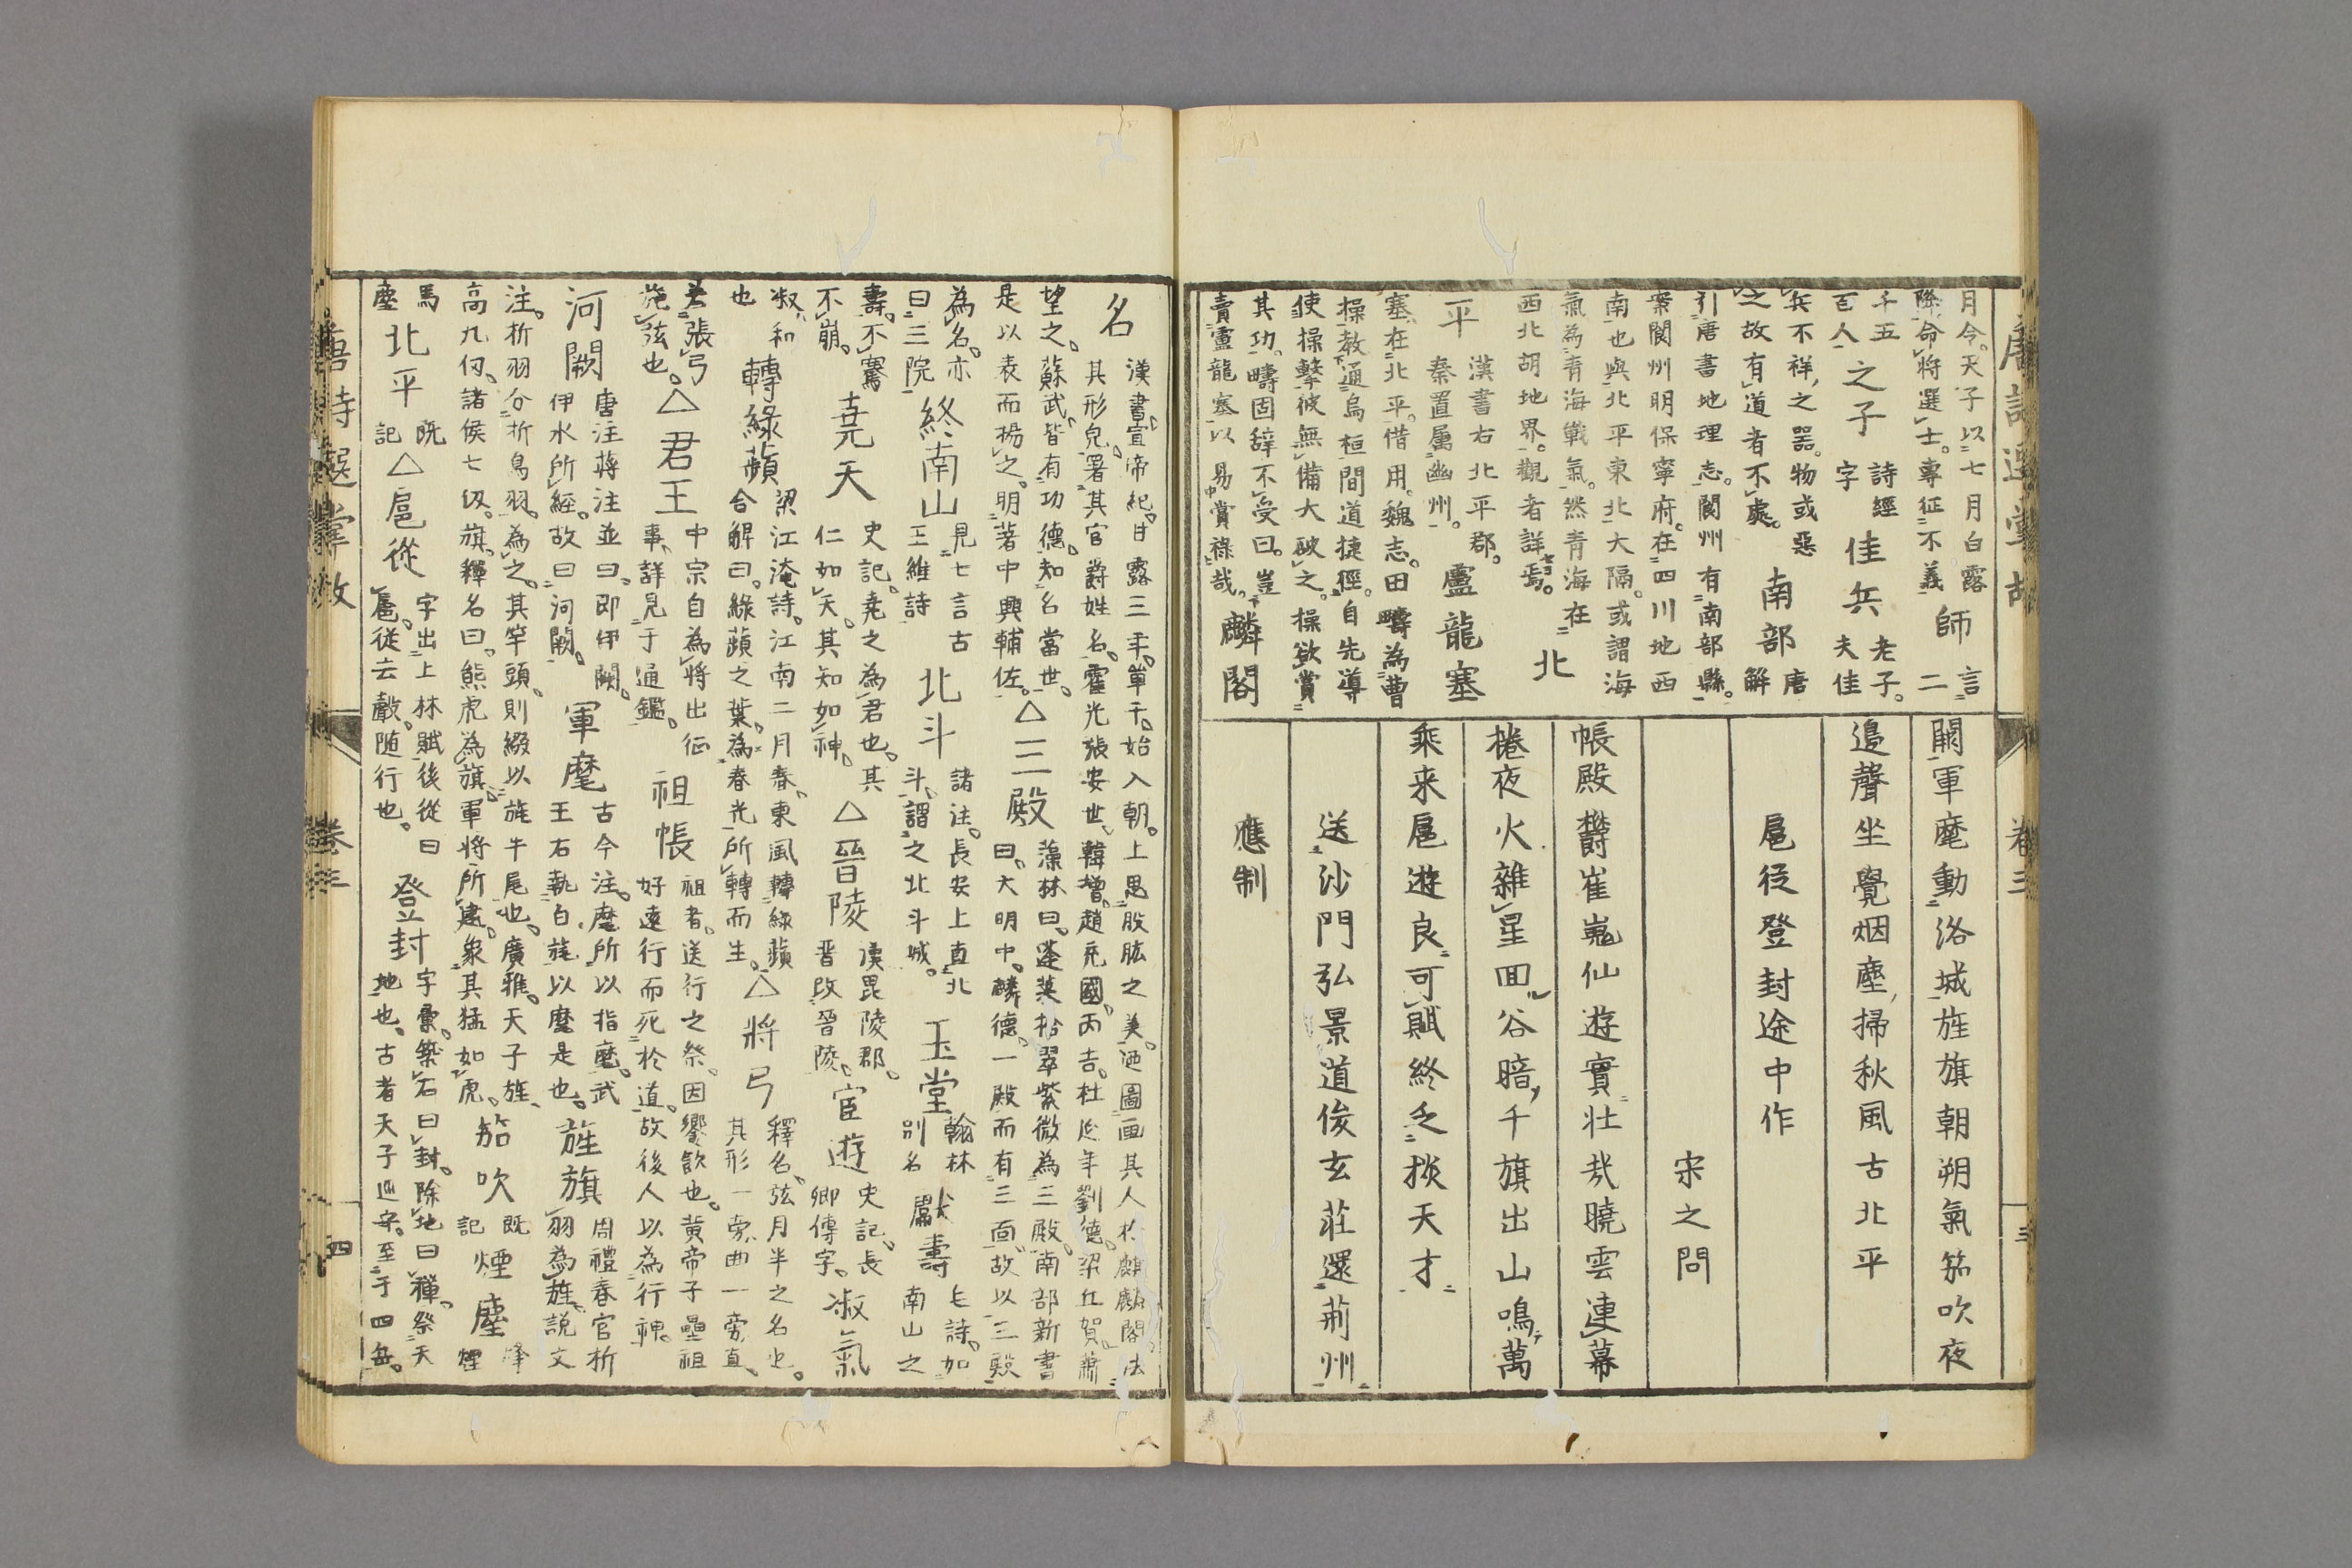 月令。天子以七月白露
降命將選士。專征不義
師
言
二
千五
百人
之子
詩經
字
佳兵
老子。
夫佳
兵不祥之器。物或惡
之故有道者不處。
南部
唐
解
引唐書地理志。閬州有南部縣。
案閬州明保寧府。在四川地西
南也與北平東北大隔。或謂海
氣為青海戰氣。然青海在
西北胡地界。觀者詳焉。
北
平
漢書右北平郡。
秦置屬幽州。
盧龍塞
塞在北平。借用。魏志。田疇為曹
操教通烏桓間道捷徑。自先導
使操擊彼無備大破之。操欲賞
其功。疇固辭不受曰。豈
賣盧龍塞以易賞祿哉。
麟閣
闕軍麾動洛城旌旗朝朔氣笳吹夜
邊聲坐覺烟塵掃秋風古北平
扈從登封途中作
宋之問
帳殿欝崔嵬仙遊實壯哉曉雲連幕
捲夜火雜星回谷暗千旗出山鳴萬
乘来扈遊良可賦終乏掞天才
送沙門弘景道俊玄莊還荊州
應制
卷三
三
名
漢書宣帝紀。甘露三年。單于始入朝。上思股肱之美。迺圖画其人於麒麟閣。法
其形皃。署其官爵姓名。霍光張安世韓增趙充國丙吉杜延年劉德梁丘賀蕭
望之蘇武皆有功德。知名當世。
是以表而揚之。明著中興輔佐。
△三殿
藻林曰。蓬萊拾翠紫微為三殿。南部新書
曰。大明中。麟德一殿而有三面。故以三殿
為名。亦
曰三院
終南山
見七言古
王維詩
北斗
諸注。長安上直北
斗。謂之北斗城。
玉堂
翰林
別名
獻壽
毛詩。如
南山之
壽。不騫
不崩。
堯天
史記。堯之為君也。其
仁如天。其知如神。
△晉陵
漢毘陵郡。
晉改晉陵。
宦遊
史記。長
卿傳字。
淑氣
淑和
也
轉綠蘋
梁江淹詩。江南二月春。東風轉綠蘋
合解曰。綠蘋之葉。為春光所轉而生。
△將弓
釋名。弦月半之名也。
其形一旁曲一旁直。
若張弓
施弦也。
△君王
中宗自為將出征
事。詳見于通鑑。
祖帳
祖者。送行之祭。因饗飲也。黄帝子壘祖
好遠行而死於道。故後人以為行神。
河闕
唐注蔣注並曰。即伊闕。
伊水所經。故曰河闕。
軍麾
古今注。麾所以指麾。武
王右執白旄以麾是也。
旌旗
周禮春官析
羽為旌。說文
注。析羽分析鳥羽。為之。其竿頭。則綴以旄牛尾也。廣雅。天子旌
高九仞。諸侯七仭。旗。釋名曰。熊虎為旗。軍將所建。象其猛如虎。
笳吹
既
記
煙塵
烽
煙
馬
塵
北平
既
記
△扈從
字出上林賦後從曰
扈。從去聲。随行也。
登封
字彙。築石曰封。除地曰禪。祭天
地也。古者天子巡守。至于四岳。
卷三
四